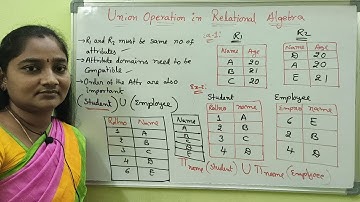 Union Operation in Relational Algebra
→ R1 and R2 must be same no. of attributes
→ Attribute domains need to be Compatible
→ Order of the Attr are also important
(Student) ∪ (Employee)
Rollno Name
1 A
2 B
3 C
4 D
6 E
R1
Name Age
A 20
B 21
C 20
R2
Name Age
D 20
A 20
E 21
Student
Rollno name
1 A
2 B
3 C
4 D
Employee
Empno name
6 E
2 B
4 D
A
B
C
D
E
Π name (Student) ∪ Π name (Employee)